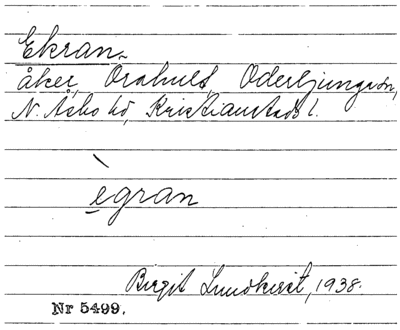 Ekran
åker, Örahult, Oderljunga sn,
N. Åsbo hd, Kristianstads l.
ègran
Birgit Lundkvist, 1938.
Nr 5499.